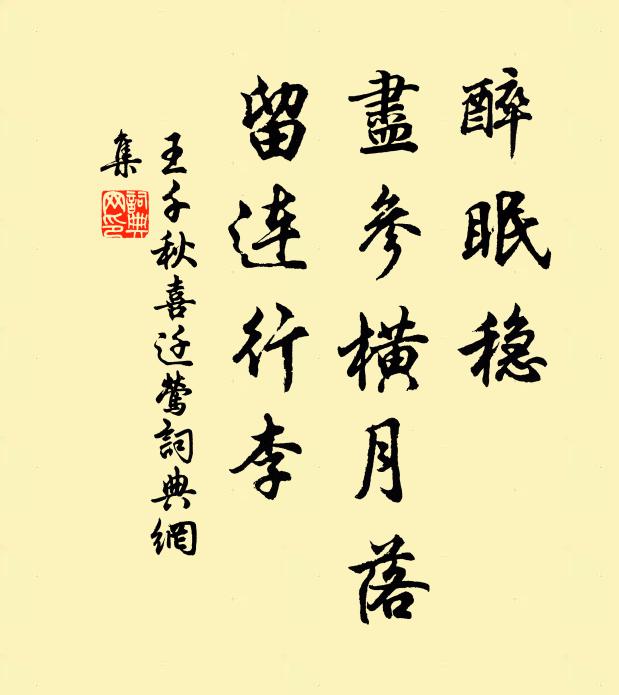 醉眠稳
盡參橫月落
留連行李
王千秋喜迁鶯詞典網
集
詞典
网印